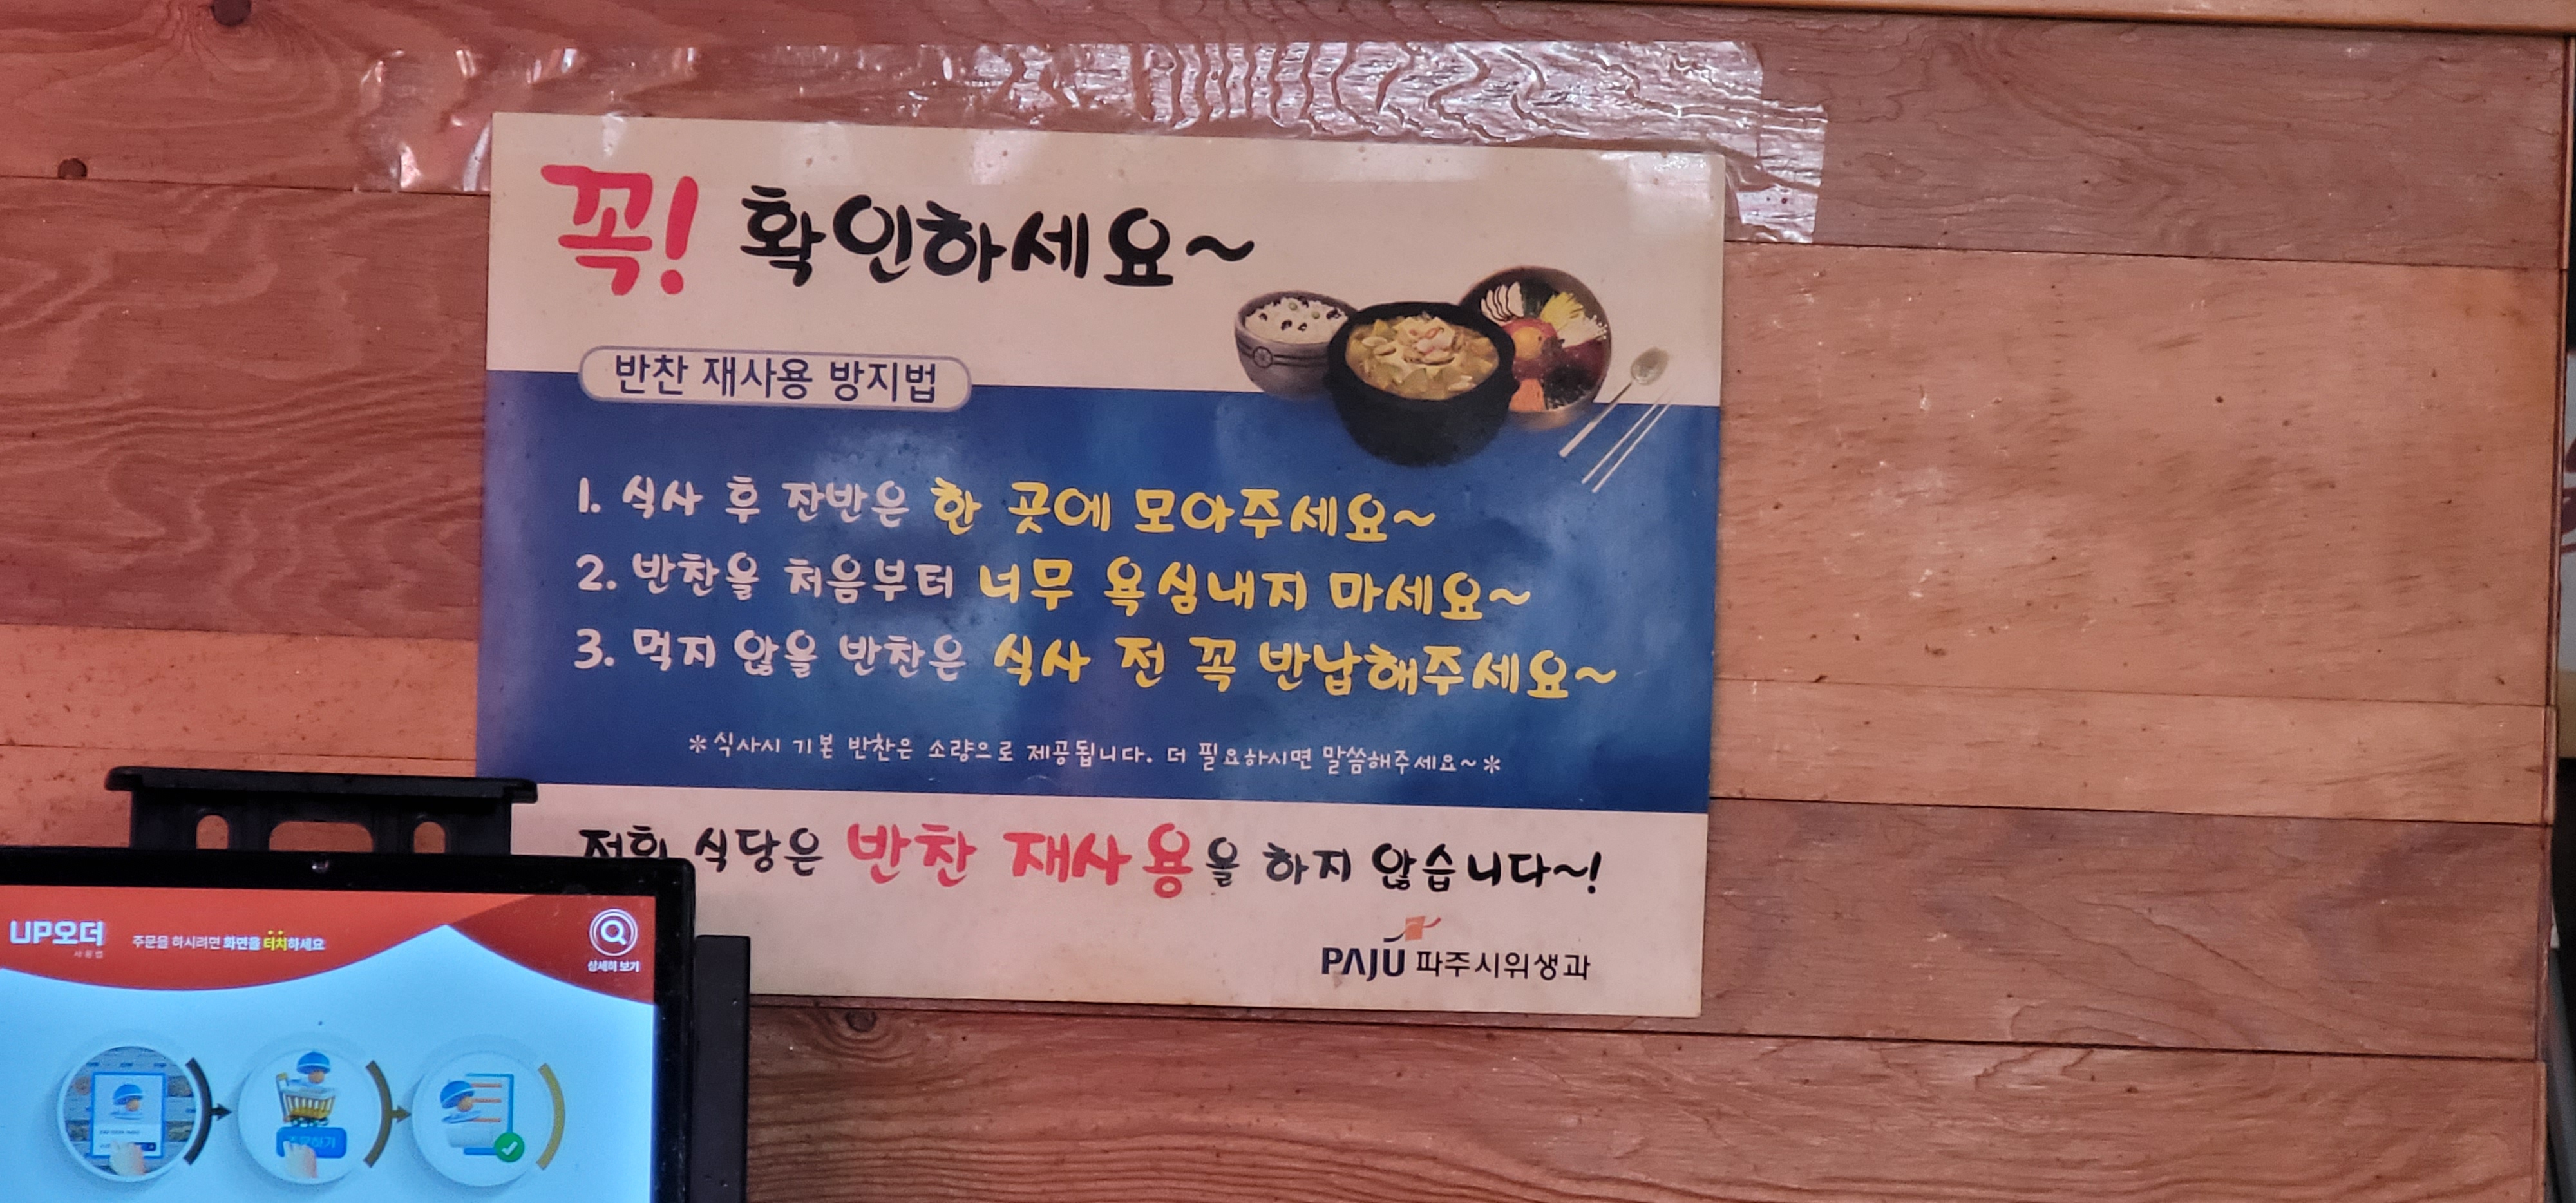 꼭! 확인하세요~
반찬 재사용 방지법
1. 식사 후 잔반은 한 곳에 모아주세요~
2. 반찬을 처음부터 너무 욕심내지 마세요~
3. 먹지 않을 반찬은 식사 전 꼭 반납해주세요~
*식사시 기본 반찬은 소량으로 제공됩니다. 더 필요하시면 말씀해주세요~*
저희 식당은 반찬 재사용을 하지 않습니다~!
PAJU 파주시위생과
UP오더
사용법
주문을 하시려면 화면을 터치하세요
상세히 보기